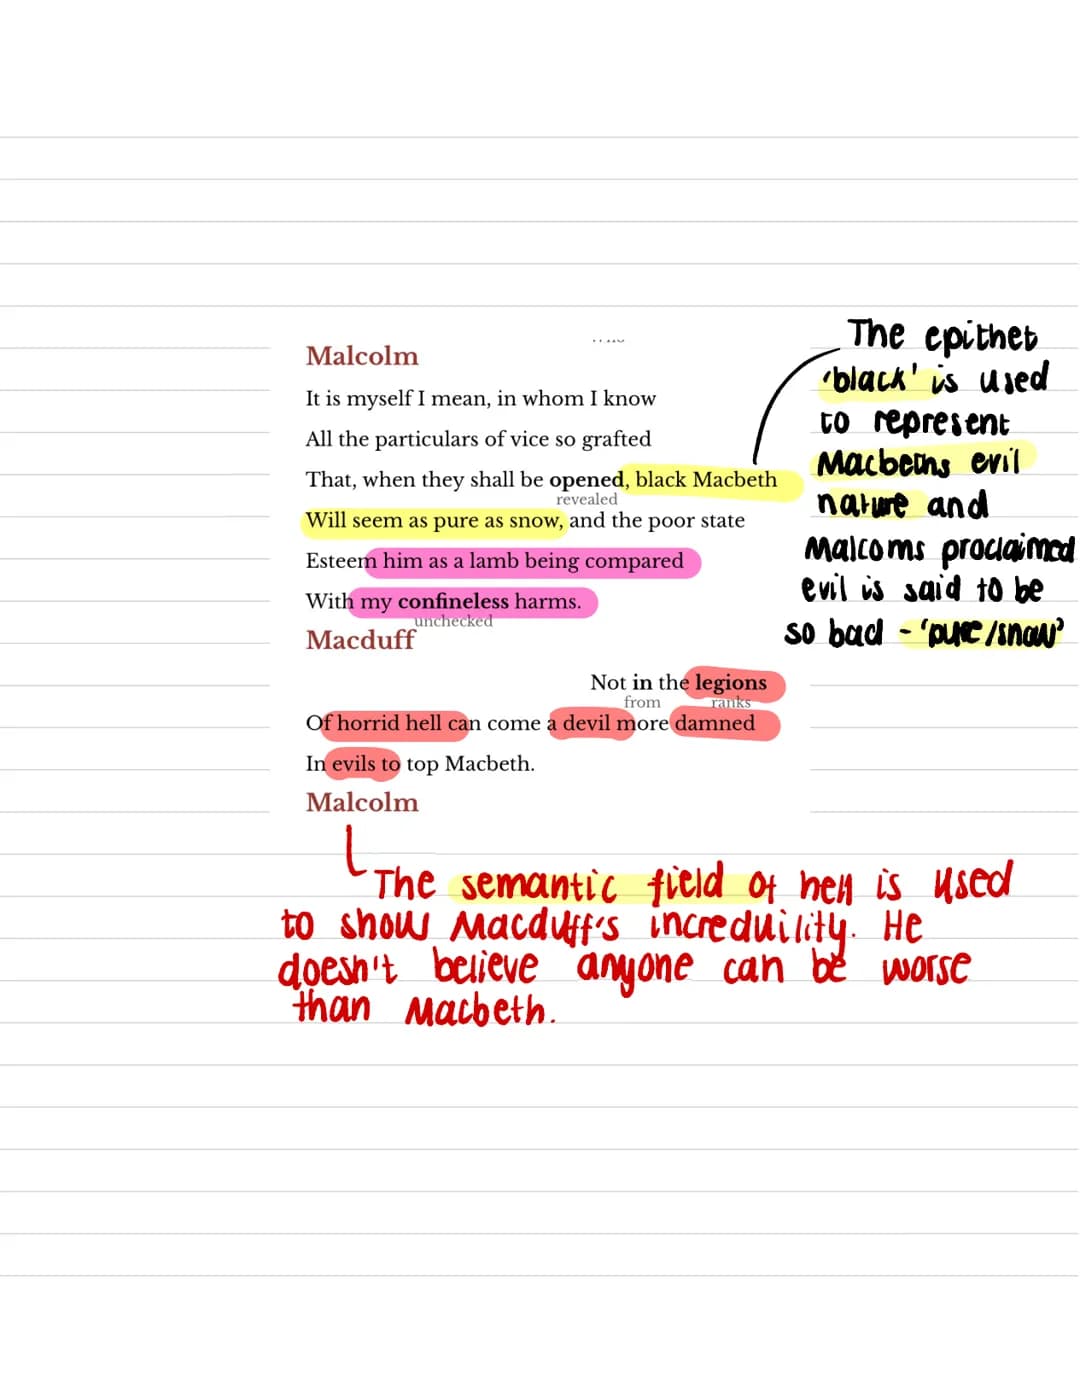 Malcolm
It is myself I mean, in whom I know
All the particulars of vice so grafted
That, when they shall be opened, black Macbeth
revealed
Will seem as pure as snow, and the poor state
Esteem him as a lamb being compared
With my confineless harms.
unchecked
Macduff
Not in the legions
from ranks
Of horrid hell can come a devil more damned
In evils to top Macbeth.
Malcolm
The epithet
'black' is used
to represent
Macbeths evil
nature and
Malcoms proclaimed
evil is said to be
so bad - 'pure/snow'
The semantic field of hell is used
to show Macduff's increduility. He
doesn't believe anyone can be worse
than Macbeth.